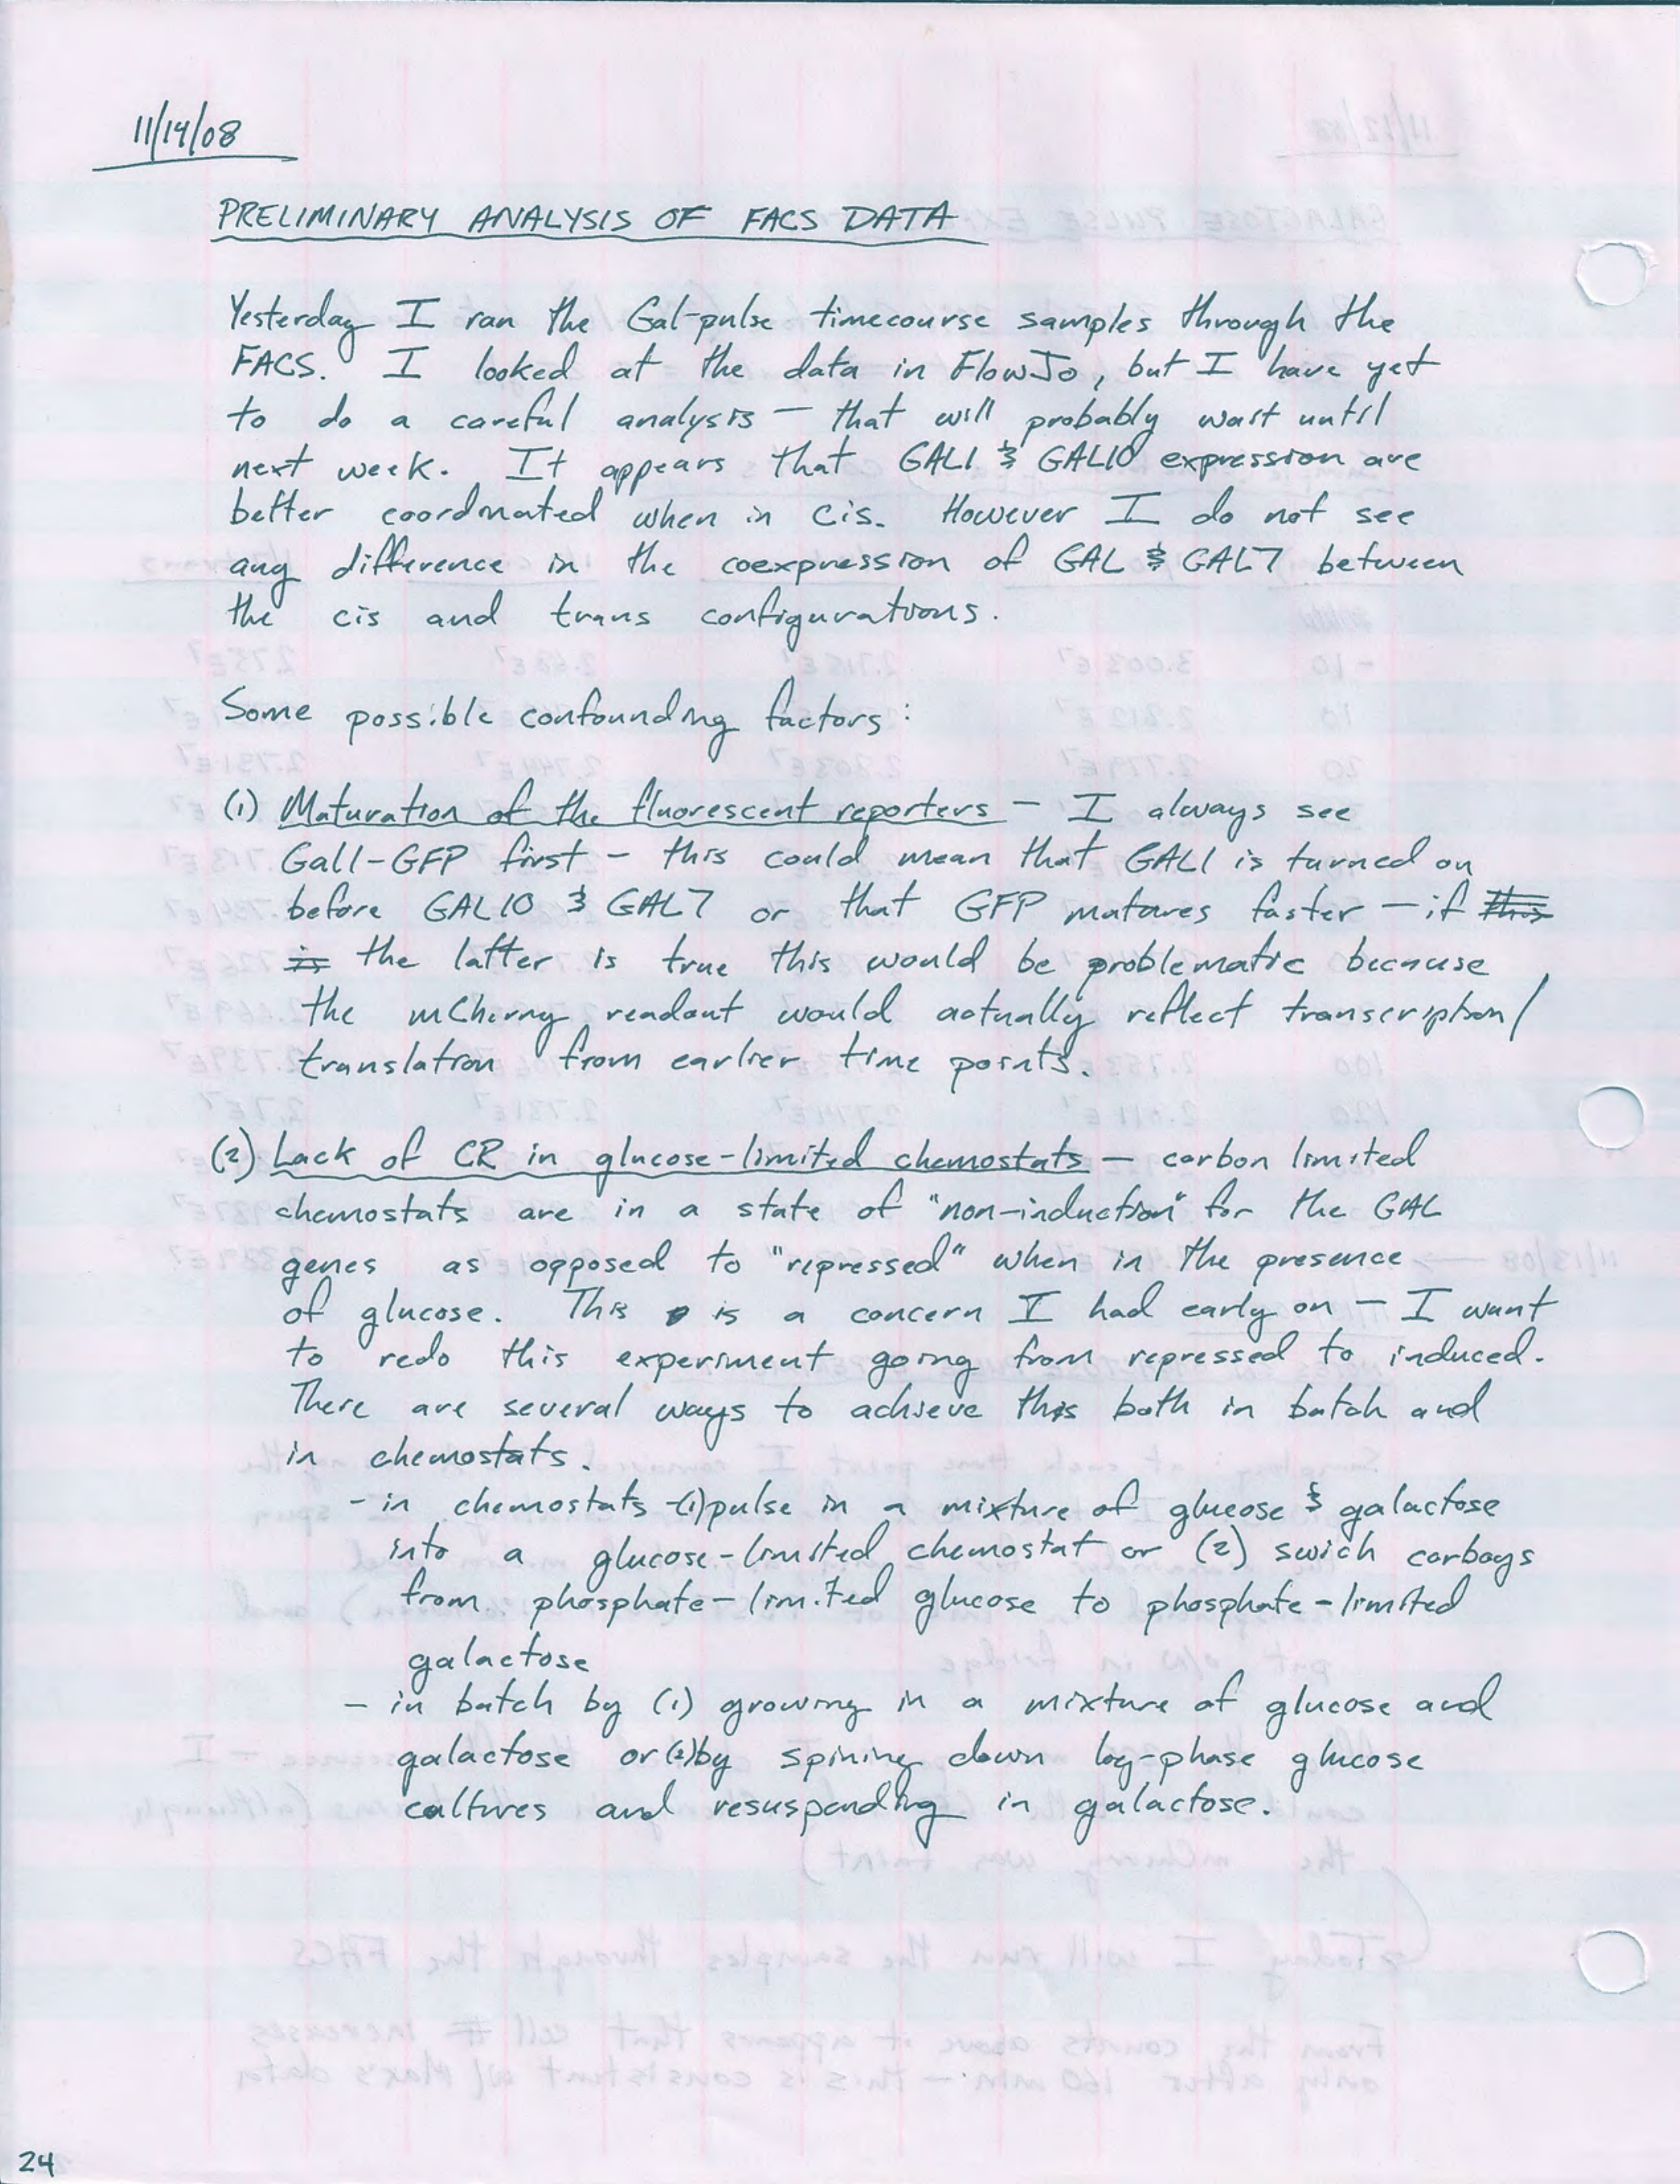 11/14/08
PRELIMINARY ANALYSIS OF FACS DATA
Yesterday I ran the Gal-pulse timecourse samples through the
FACS. I looked at the data in FlowJo, but I have yet
to do a careful analysis — that will probably wait until
next week. It appears that GAL1 & GAL10 expression are
better coordinated when in cis. However I do not see
any difference in the coexpression of GAL & GAL7 between
the cis and trans configurations.
Some possible confounding factors:
(1) Maturation of the fluorescent reporters — I always see
Gal1-GFP first — this could mean that GAL1 is turned on
before GAL10 & GAL7 or that GFP matures faster — if this
is the latter is true this would be problematic because
the mCherry readout would actually reflect transcription/
translation from earlier time points.
(2) Lack of CR in glucose-limited chemostats — carbon limited
chemostats are in a state of "non-induction" for the GAL
genes as opposed to "repressed" when in the presence
of glucose. This is a concern I had early on — I want
to redo this experiment going from repressed to induced.
There are several ways to achieve this both in batch and
in chemostats.
- in chemostats -(1)pulse in a mixture of glucose & galactose
into a glucose-limited chemostat or (2) swich carboys
from phosphate-limited glucose to phosphate-limited
galactose
- in batch by (1) growing in a mixture of glucose and
galactose or(2)by spining down log-phase glucose
cultures and resuspending in galactose.
24